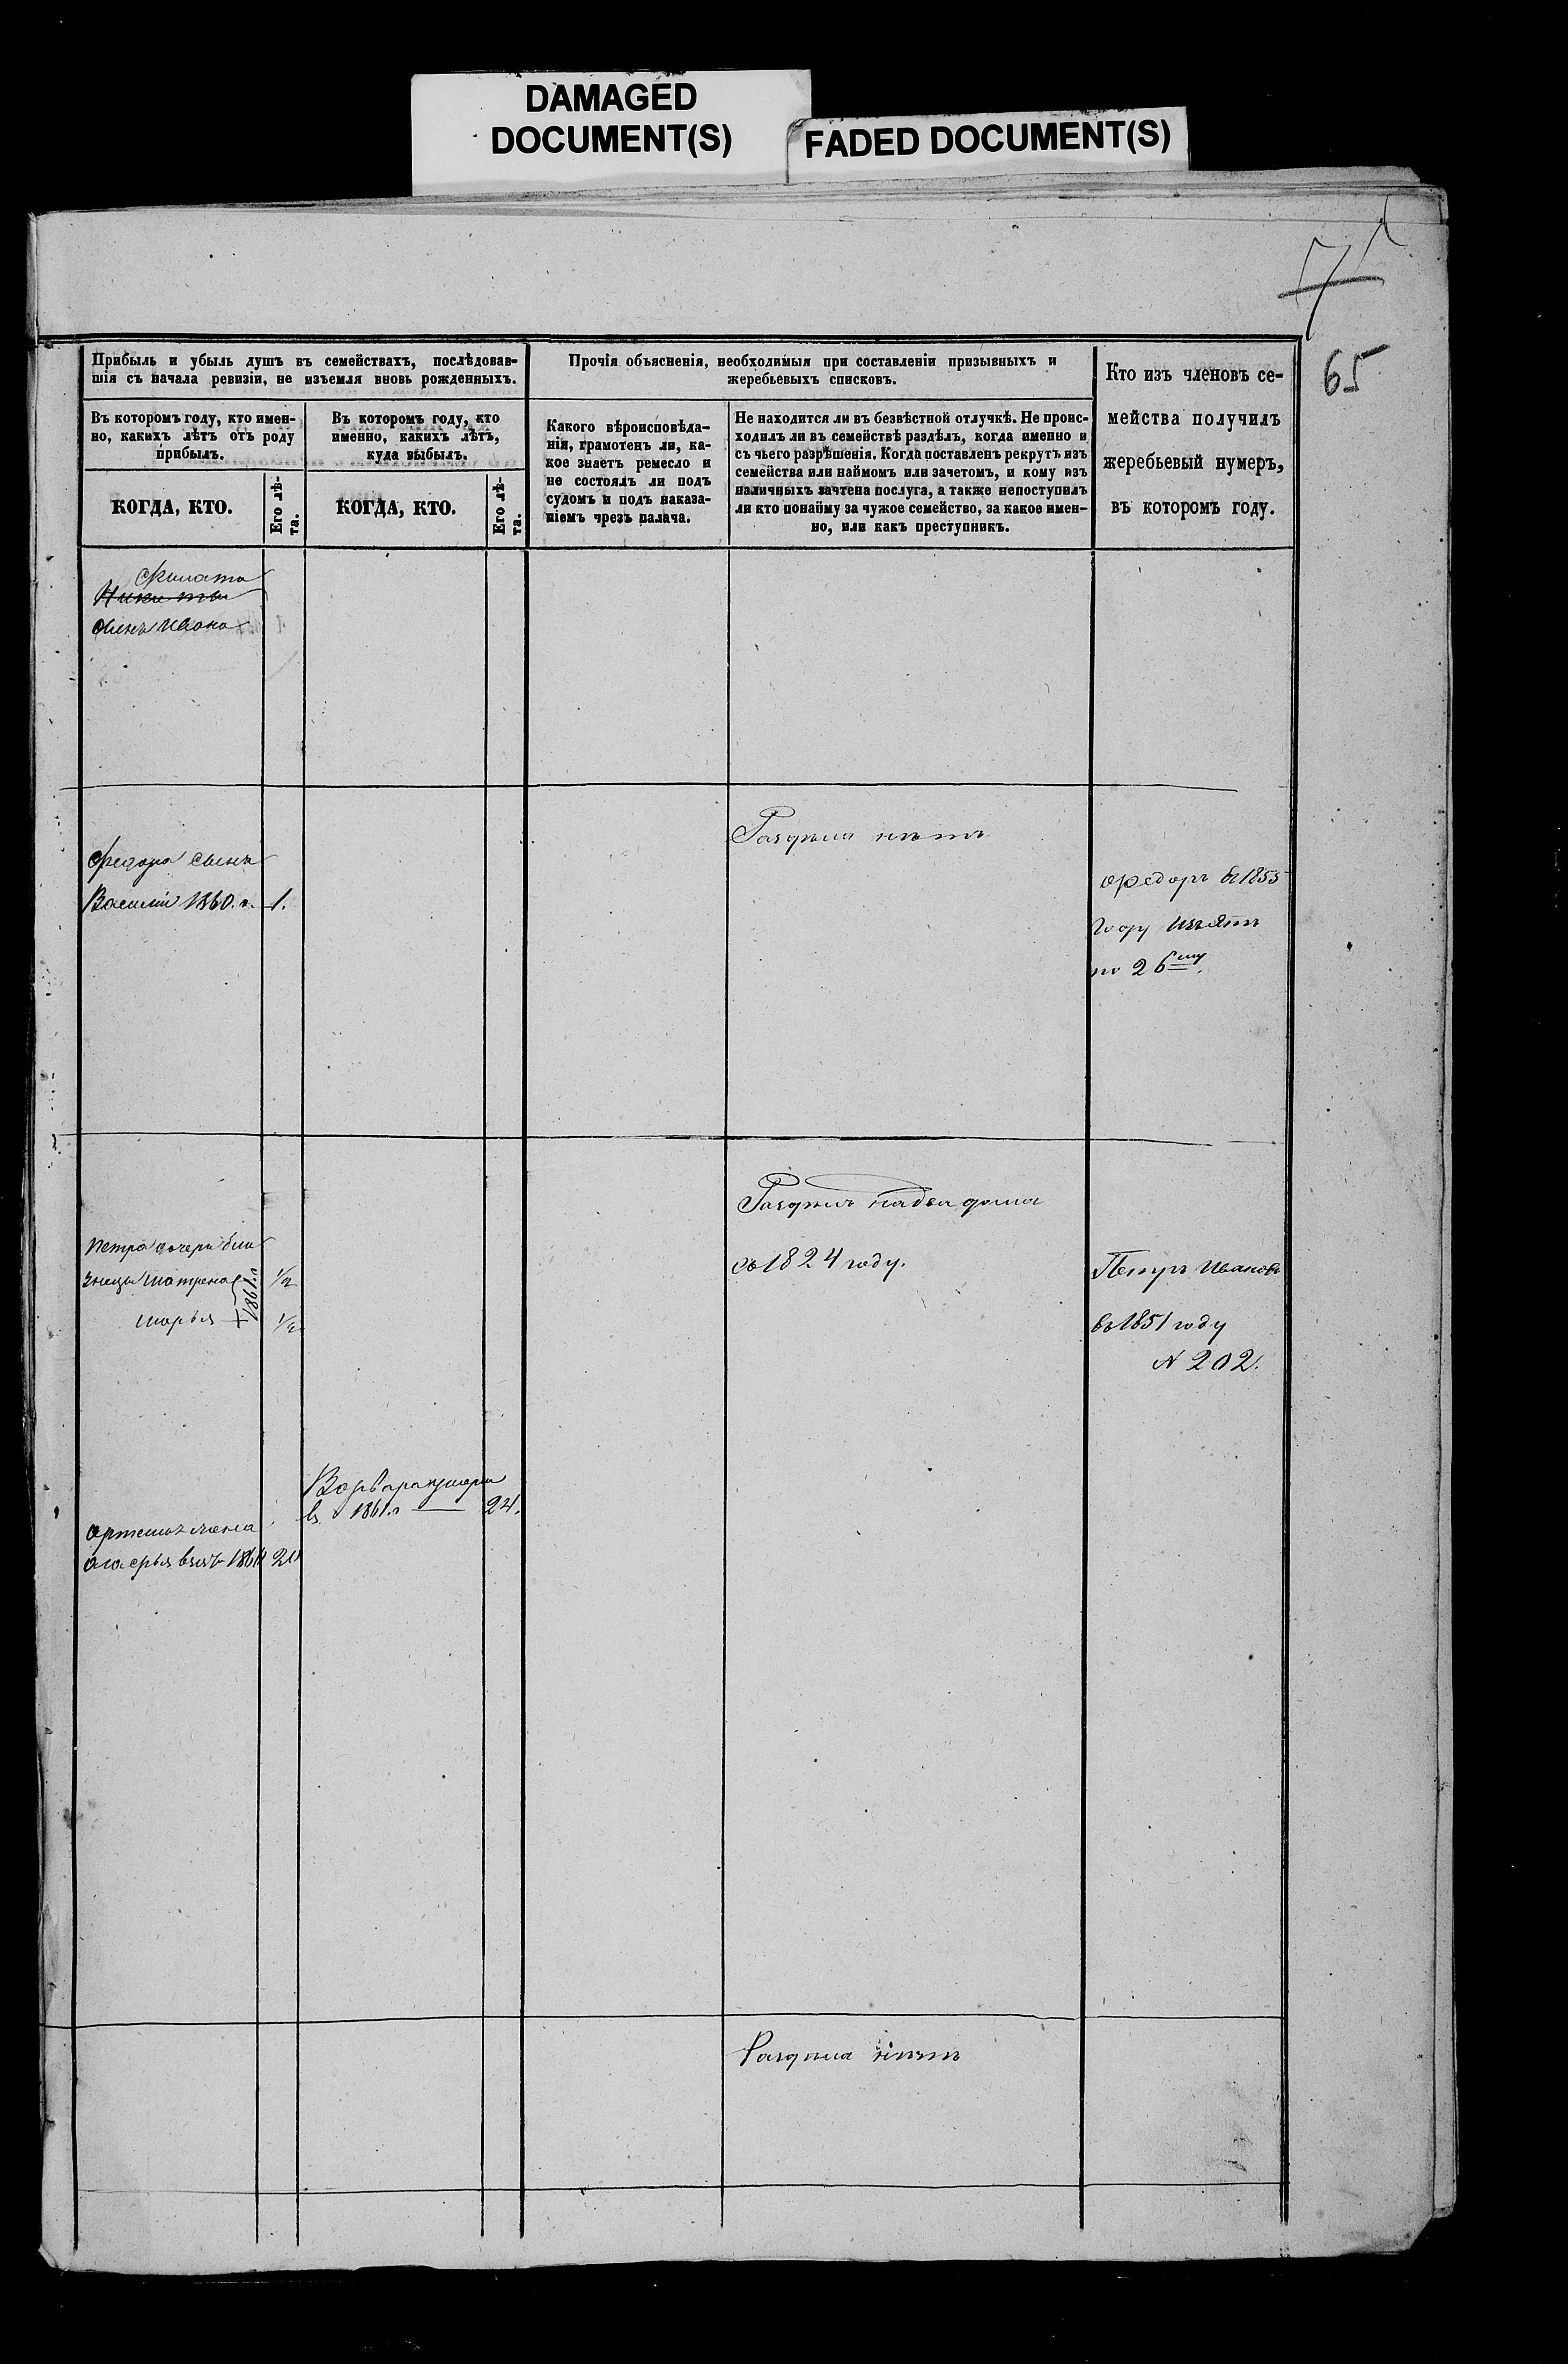 DAMAGED
DOCUMENT(S)
FADED DOCUMENT(S)
65
Прибыль и убыль душъ въ семействахъ, послѣдовав-
шія съ начала ревизіи, не изъемля вновь рожденныхъ.
Прочія объясненія, необходимыя при составленіи призывныхъ и
жеребьевыхъ списковъ.
Кто изъ членовъ се-
мейства получилъ
жеребьевый нумеръ,
въ которомъ году.
Въ которомъ году, кто имен-
но, какихъ лѣтъ отъ роду
прибылъ.
Въ которомъ году, кто
именно, какихъ лѣтъ,
куда выбылъ.
Какого вѣроисповѣда-
нія, грамотенъ ли, ка-
кое знаетъ ремесло и
не состоялъ ли подъ
судомъ и подъ наказа-
ніемъ чрезъ палача.
Не находится ли въ безвѣстной отлучкѣ. Не проис-
ходилъ ли въ семействѣ раздѣлъ, когда именно и
съ чьего разрѣшенія. Когда поставленъ рекрутъ изъ
семейства или наймомъ или зачетомъ, и кому изъ
наличныхъ зачтена послуга, а также непоступилъ
ли кто понайму за чужое семейство, за какое имен-
но, или какъ преступникъ.
КОГДА, КТО.
Его лѣ-
та.
КОГДА, КТО.
Его лѣ-
та.
Никиты
сынъ Ивана
Раздѣла нѣтъ
Федора сынъ
Василий 1860.г. 1.
Федоръ в 1855
году изъятъ
по 26му.
Раздѣлъ на два дома
съ 1824 году.
Петра дочери близ
знецы Матрена 1861.г 1/2
Марья 1/2
Петръ Ивановъ
въ 1851 году
N 202.
Варвара умерла
въ 1861.г 24.
Артемья жена
взятъ 186
Раздѣла нѣтъ